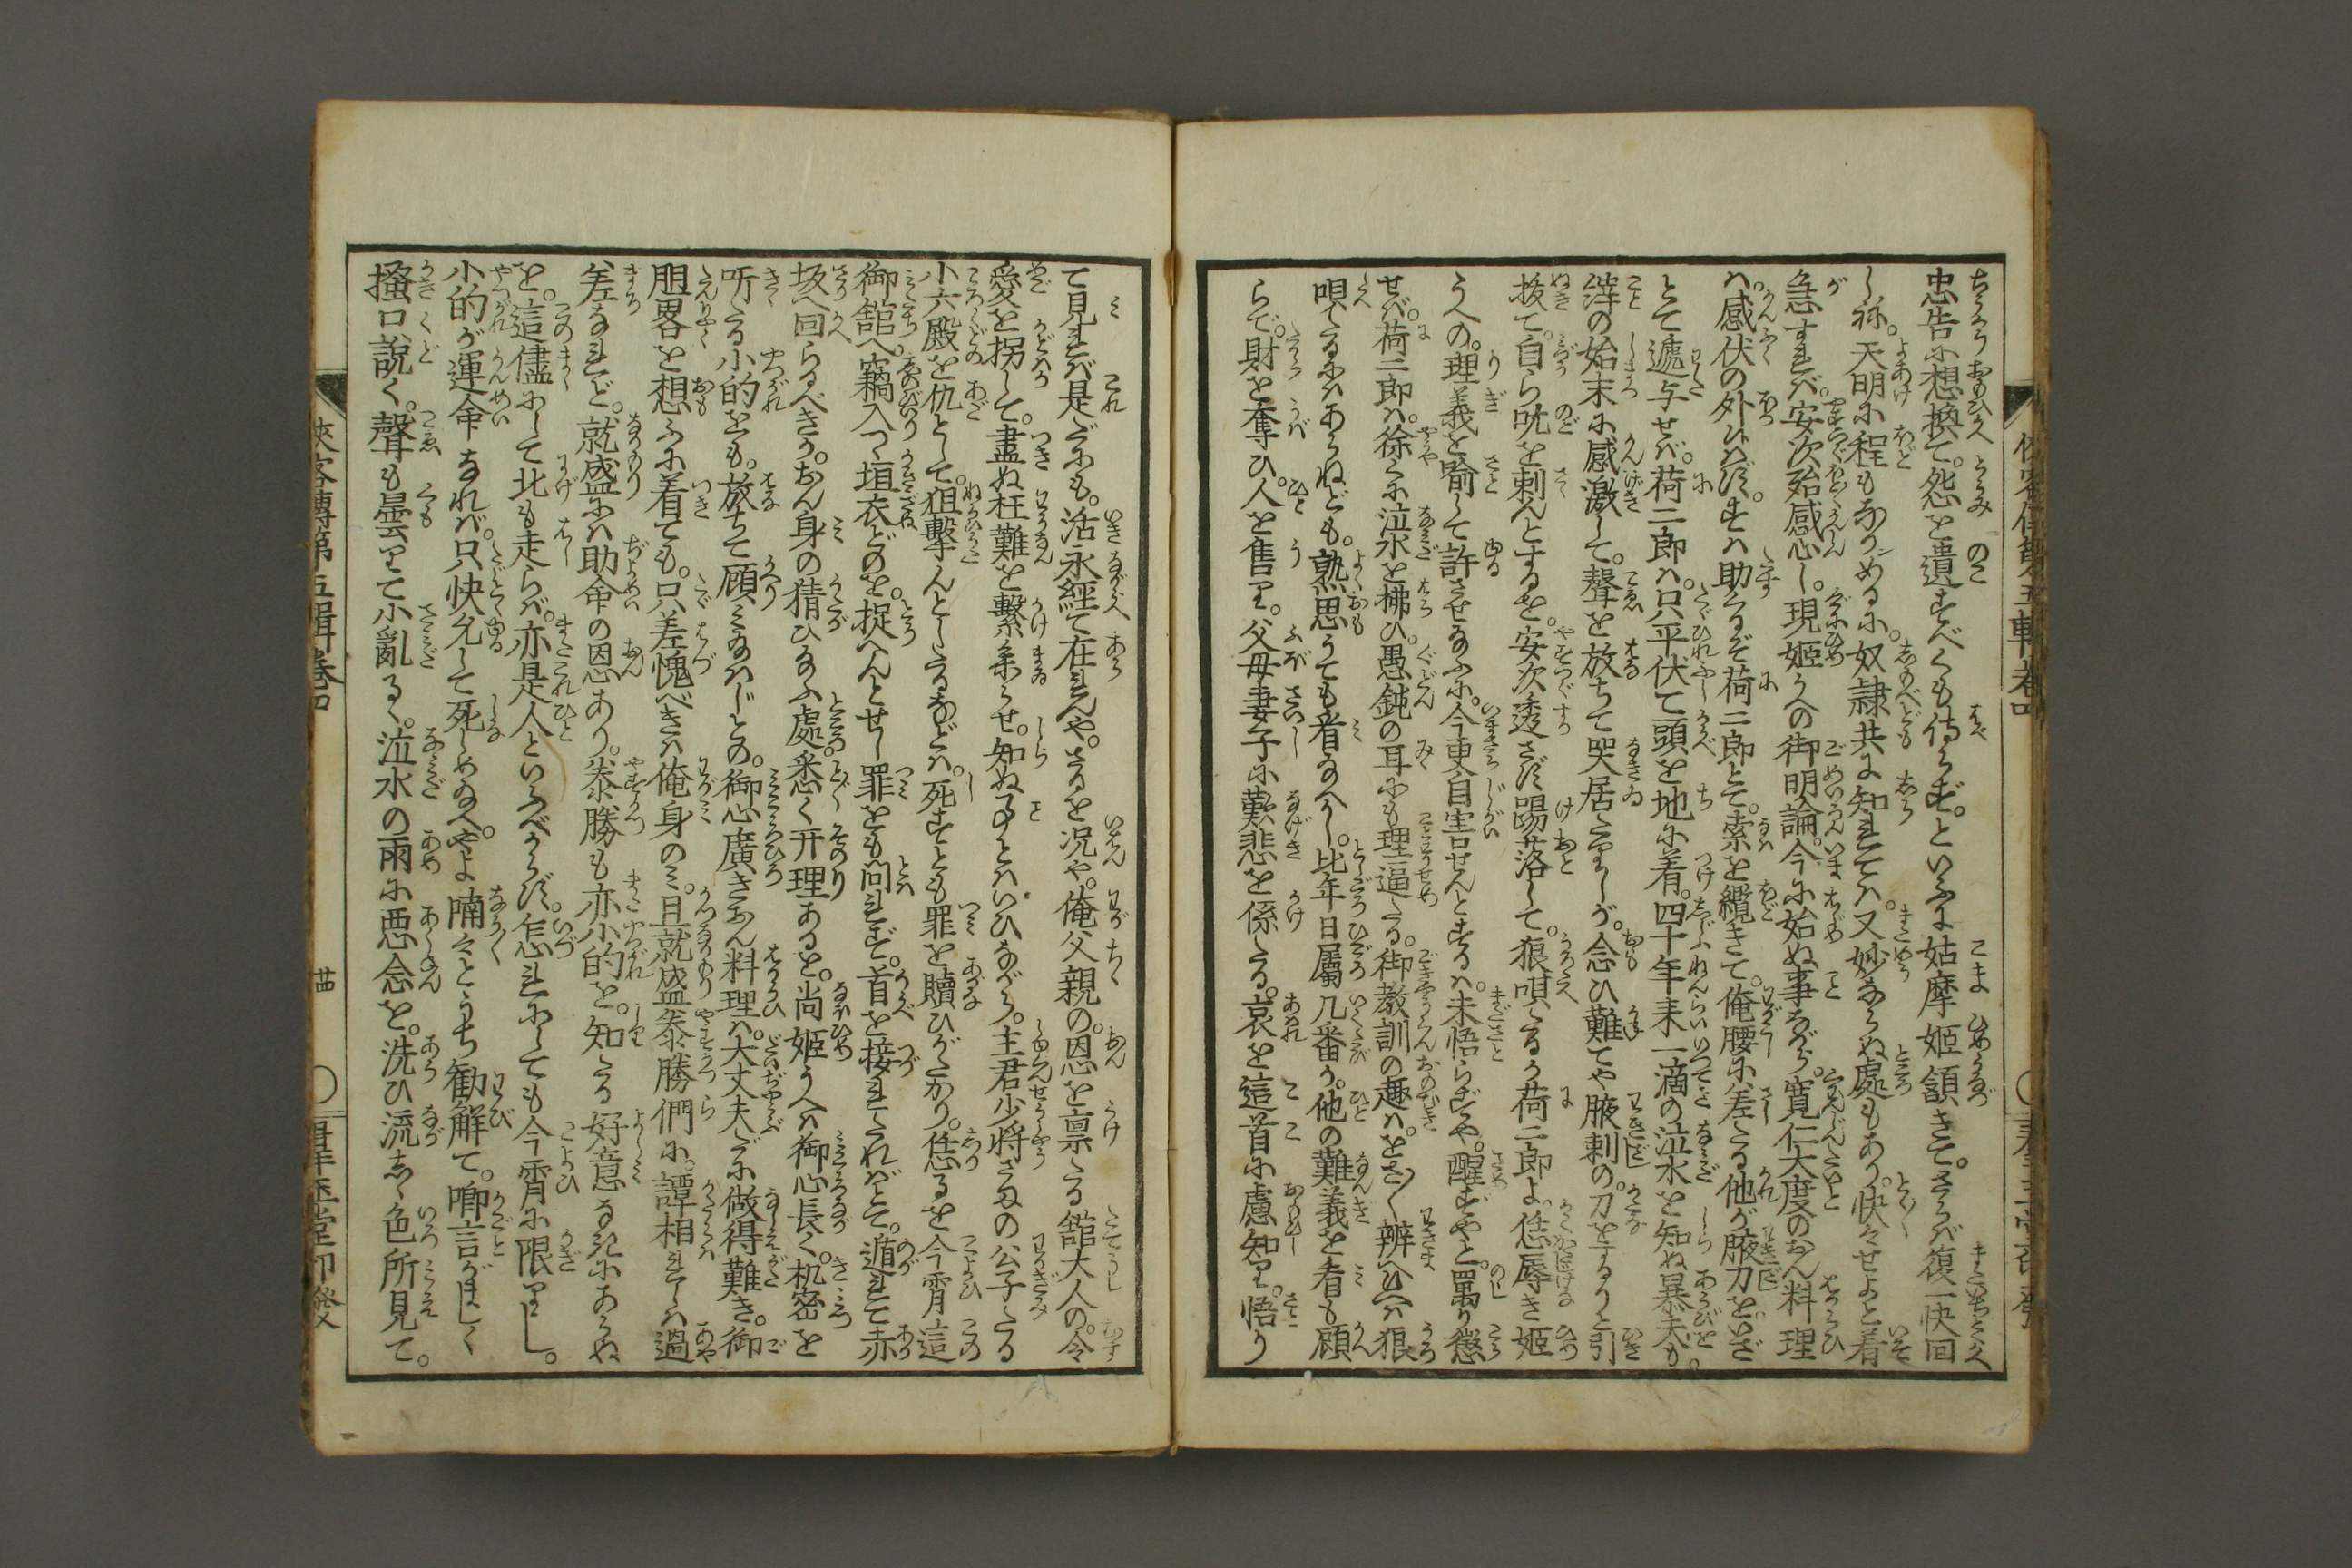 忠告に想換て。怨を遺すべくも侍らず。といふに姑摩姫頷きて。さらば復一快回
し祢。天明に程もなかめるに。奴隷共に知れては。又妙ならぬ處もあり。快々せよと着
急すれば。安次殆感心し。現姫うへの御明論。今に始ぬ事ながら。寛仁大度のおん料理
は。感伏の外はべらず。すは助るぞ荷二郎とて。索を纜きて。俺腰に差たる他が腋刀をいざ
とて遞与せば。荷二郎は。只平伏て頭を地に着。四十年来一滴の泣水を知ぬ暴夫も。
縡の始末に感激して。聲を放ちて哭居たりしが。念ひ難てや腋刺の。刀をするりと引
抜て。自ら吭を刺んとするを。安次透さず踢落して。狼唄たるか荷二郎よ。恁辱き姫
うへの。理義を喩して許させ給ふに。今更自害せんとするは。未悟らずや。醒ずやと。罵り懲
せば。荷二郎は。徐々に泣水を拂ひ。愚鈍の耳にも理逼たる。御教訓の趣は。をさ〳〵辨へ候へば狼
唄たるにはあらねども。熟思うても看給へかし。比年日屬几番か。他の難義を看も顧
らで。財を奪ひ。人を售り。父母妻子に歎悲を係たる。哀を這首に慮知り。悟り
て見れば是だにも。活永經て在れんや。さるを况や。俺父親の。恩を稟たる舘大人の。令
愛を拐して。盡ぬ枉難を繫糸らせ。知ぬ事とはいひながら。主君少将さまの公子たる
小六殿を仇として。狙擊んとしたるなどは。死すとも罪を贖ひがたかり。恁るを今霄這
御舘へ竊入つゝ垣衣どのを。捉へんとせし罪をも問れず。首を接れたればとて。遁れて赤
坂へ回らるべきか。おん身の猜ひ給ふ處。悉く开理あるを。尚姫うへは御心長く。机密を
听たる小的をも。放ちて顧み給はじとの。御心廣きおん料理は。大丈夫だに做得難き。御
胆畧を想ふに着ても。只差愧べきは俺身のみ。且就盛泰勝們に。譚相れしは過
差なれど。就盛には助命の恩あり。泰勝も亦小的を。知たる好意なきにあらぬ
を。這儘にして北も走らば。亦是人といふべからず。怎れにしても今霄に限りし。
小的が運命なれば。只快允して死しめ給へ。やよ喃々とうち勧解て。啣言がましく
搔口説く。聲も曇りて小亂るゝ。泣水の雨に悪念を。洗ひ流しゝ色所見て。
俠客傳第五輯卷四
廿四